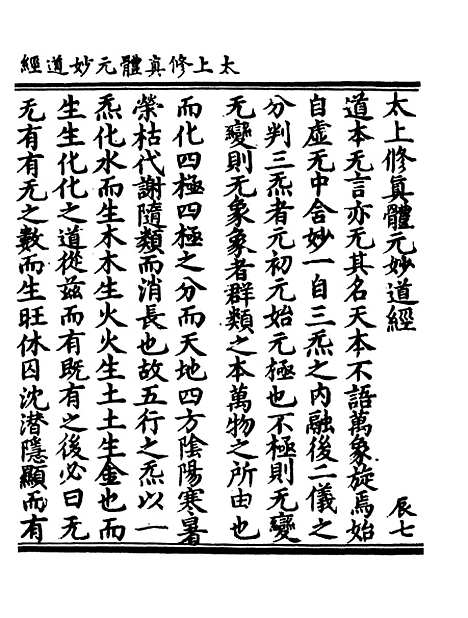 太上修真體元妙道經
太上修真體元妙道經　辰七
道本无言亦无其名天本不語萬象旋焉始
自虛无中含妙一自三炁之內融後二儀之
分判三炁者元初元始元極也不極則无變
无變則无象象者群類之本萬物之所由也
而化四極四極之分而天地四方陰陽寒暑
榮枯代謝隨類而消長也故五行之炁以一
炁化水而生木木生火火生土土生金也而
生生化化之道從茲而有既有之後必曰无
无有有无之數而生旺休囚沈潛隱顯而有